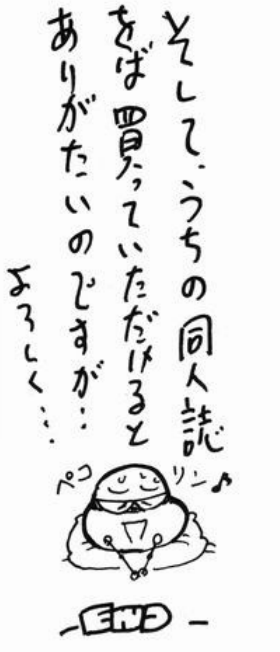 そして、うちの同人誌
をば買っていただけると
ありがたいのですが…
よろしく…
ペコ
リン♪
-END-